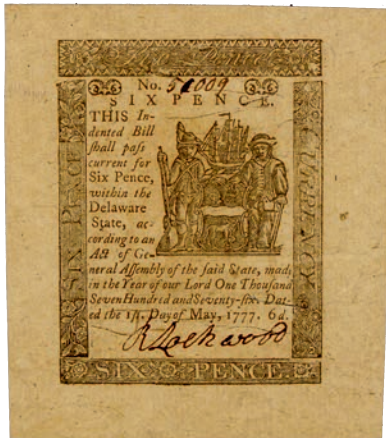 Six Pence
No. 51009
SIX PENCE.
THIS In-
dented Bill
ſhall paſs
current for
Six Pence,
within the
Delaware
State, ac-
cording to an
Act of Ge-
neral Aſſembly of the ſaid State, made
in the Year of our Lord One Thouſand
Seven Hundred and Seventy-ſix. Dat-
ed the 1ſt. Day of May, 1777. 6d.
R Lockwood
SIX PENCE
CURRENCY
SIX PENCE.